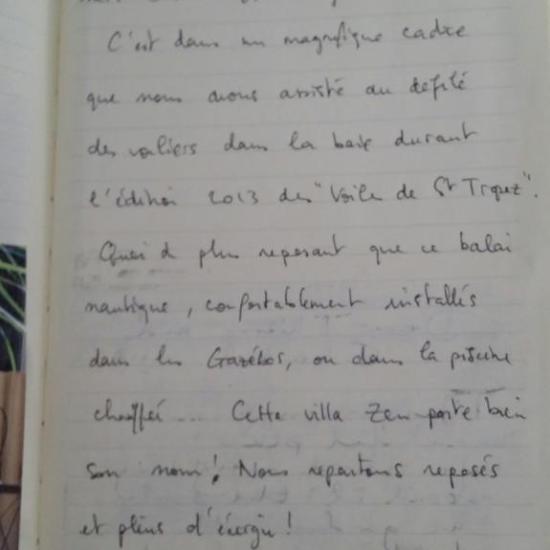 C'est dans un magnifique cadre
que nous avons assisté au défilé
des voiliers dans la baie durant
l'édition 2013 des "Voile de St Tropez".
Quoi d plus reposant que ce balai
nautique, confortablement installés
dans les Gazébos, ou dans la piscine
chauffée... Cette villa Zen porte bien
son nom! Nous repartons reposés
et pleins d'énergie!